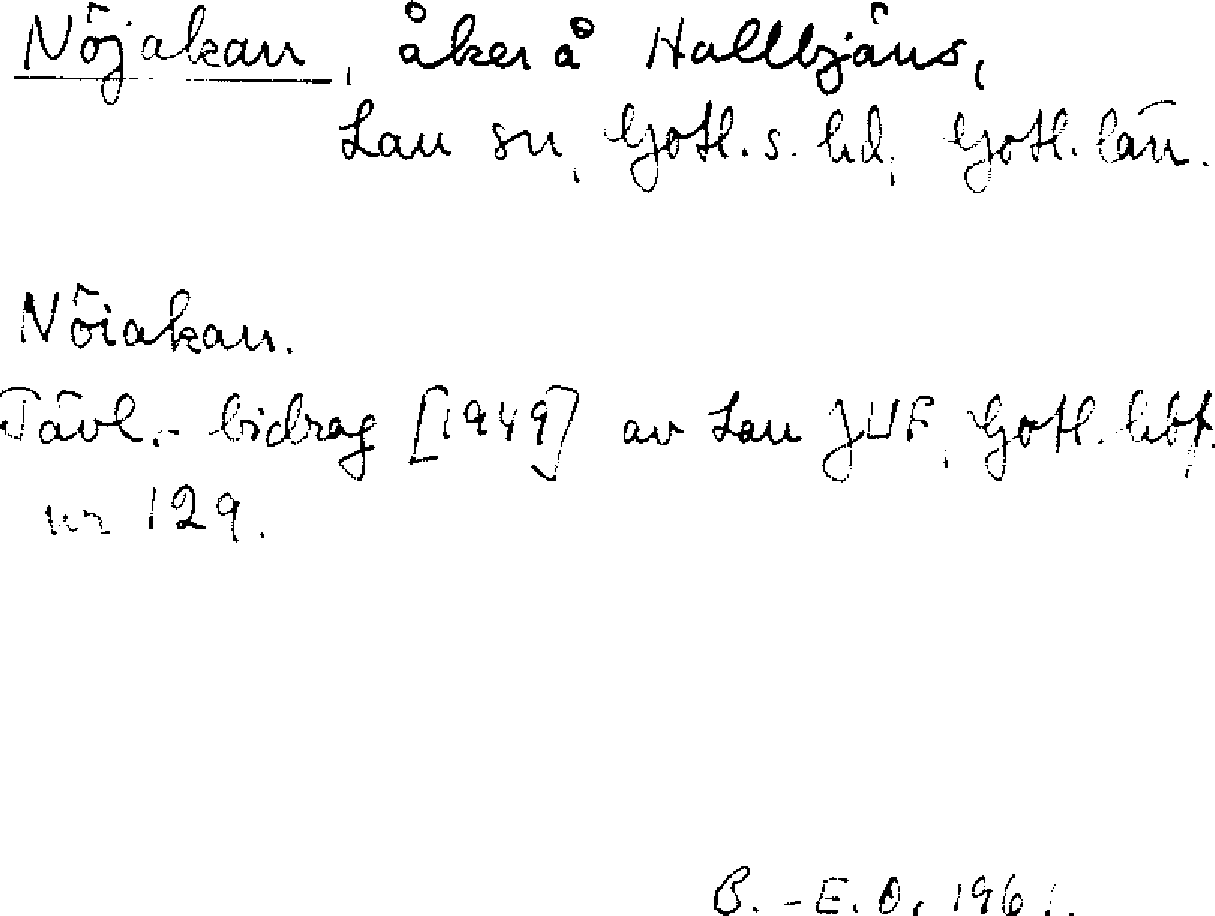 Nöjakan, åker å Hallbjäns,
Lau sn, Gotl. s. hd, Gotl. län.
Nöiakan.
Tävl.-bidrag [1949] av Lau JUF, Gotl. hbf.
nr 129.
B.-E.O. 1961.